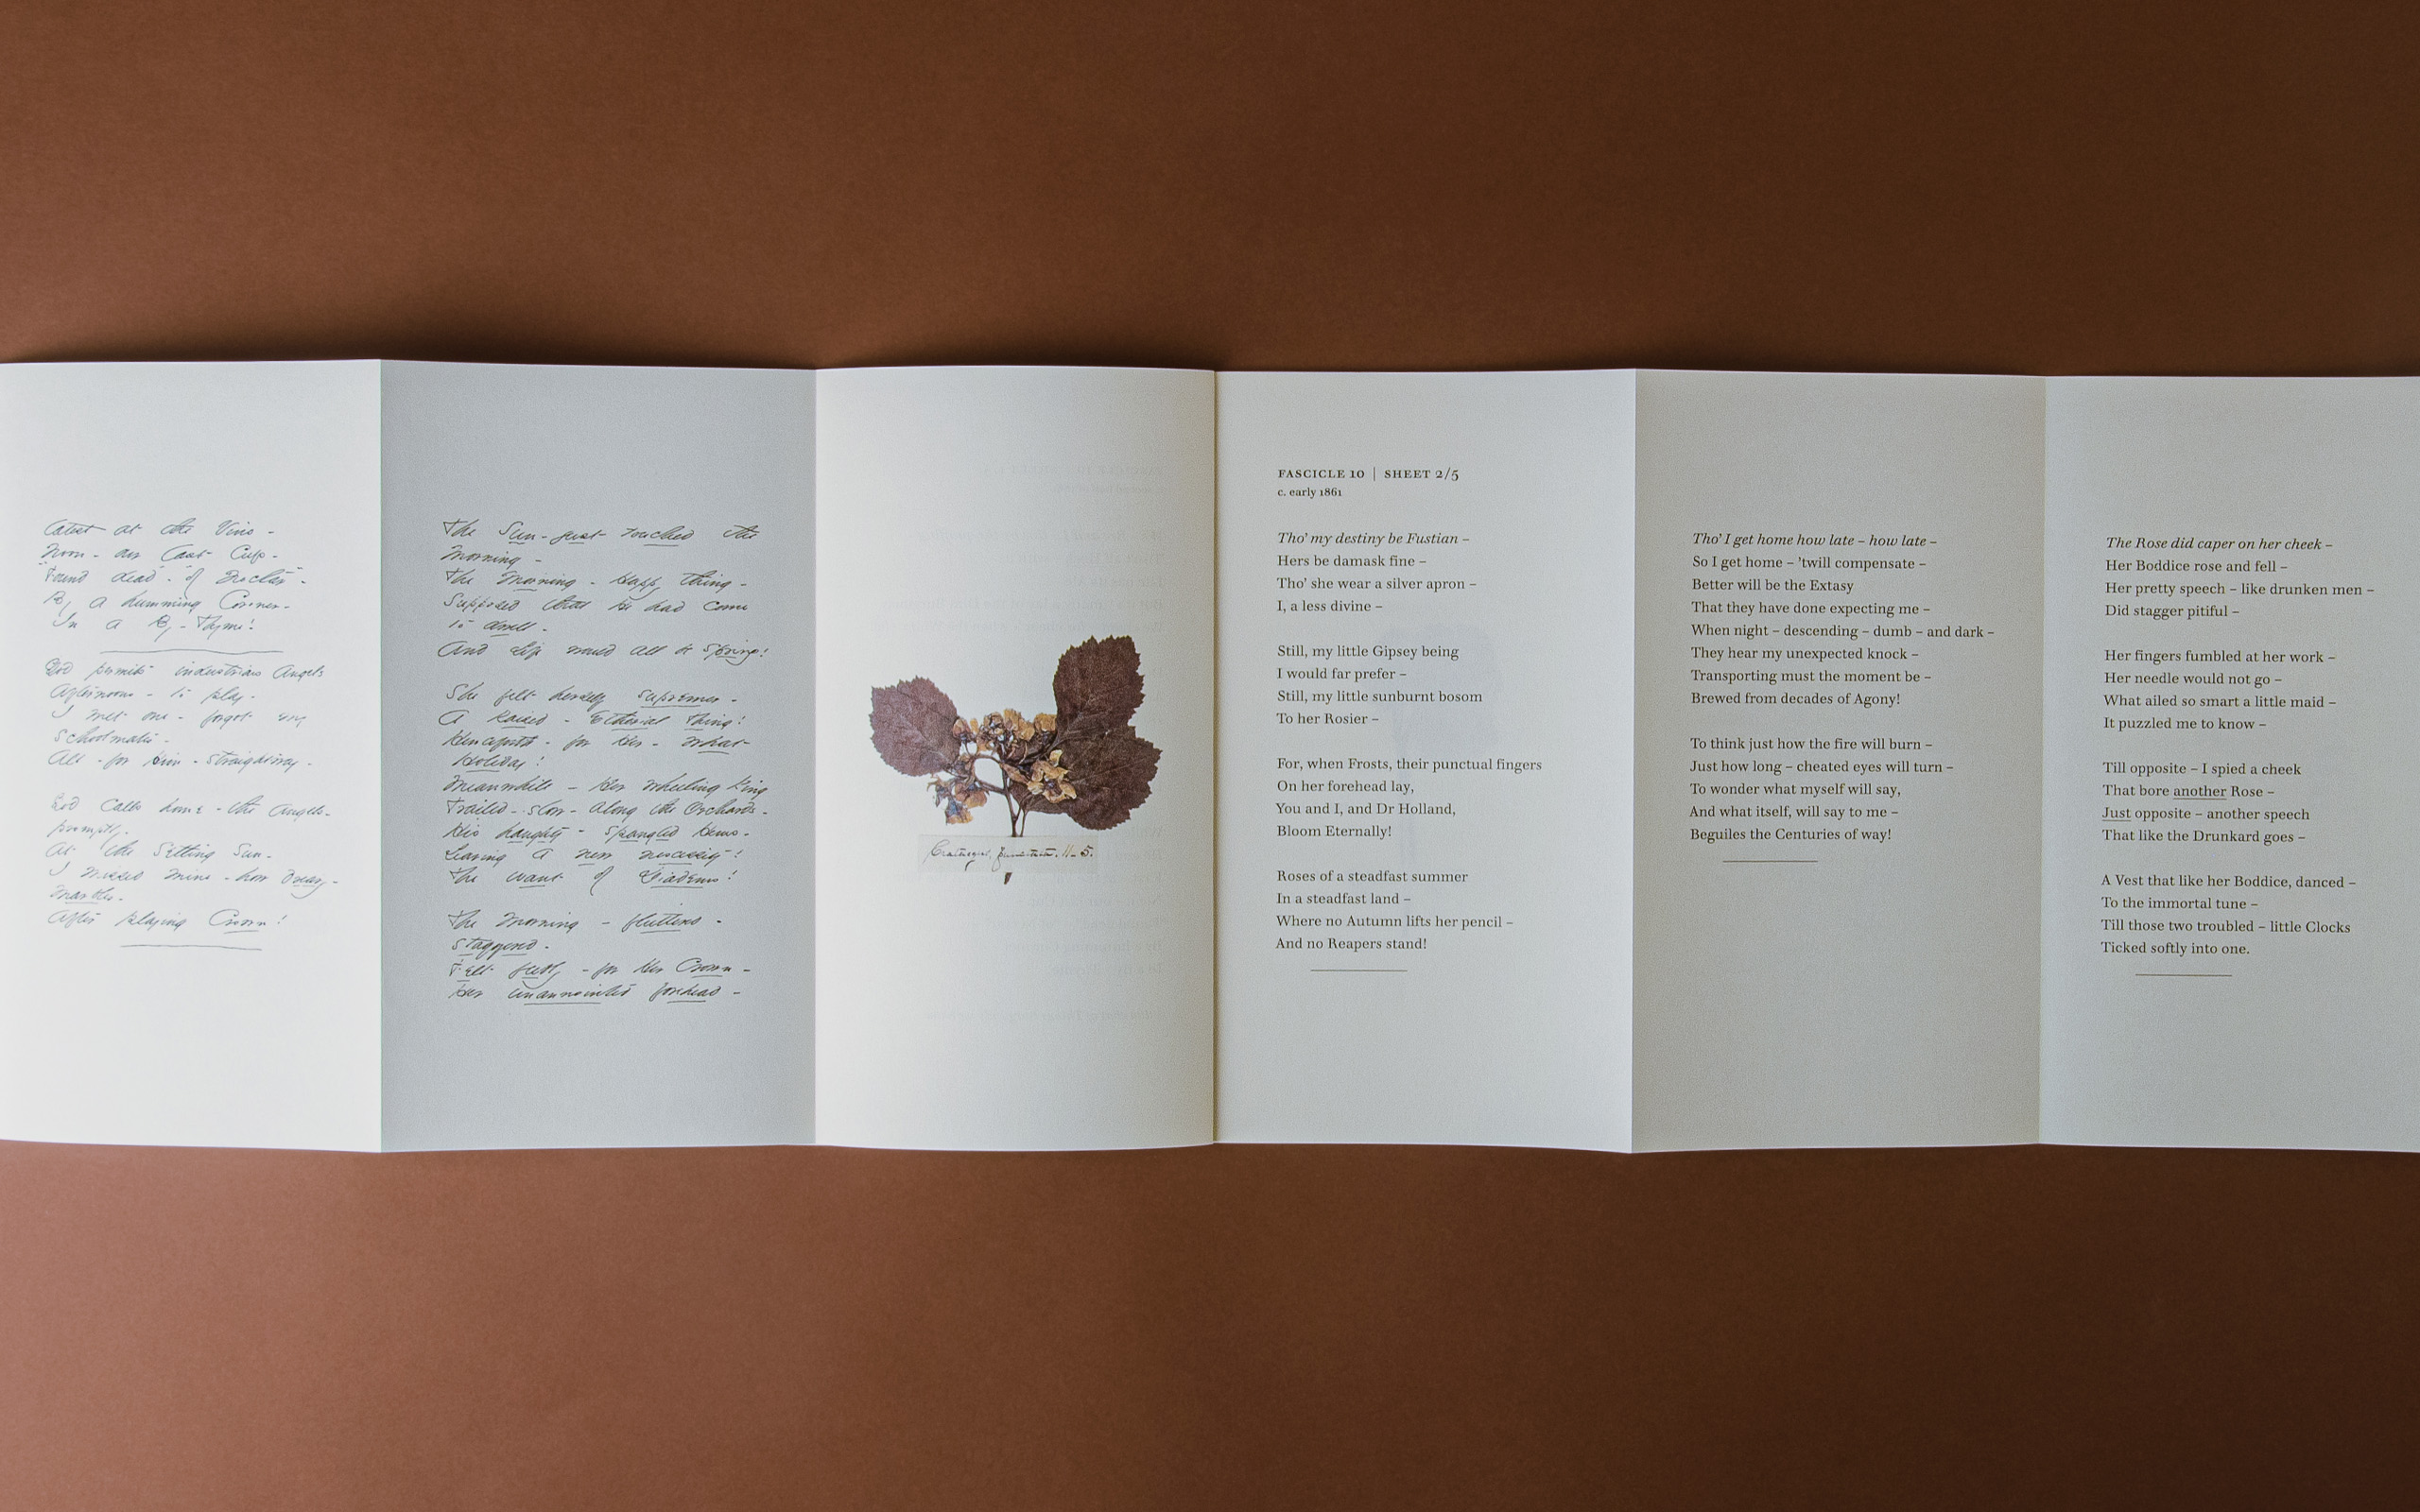 Catest at the Vine -
Noon - an East Cup -
"Found dead" - "of Nectar" -
By a humming Coroner -
In a By - Thyme!
God permits industrious Angels
Afternoons - to play -
I met one - forgot my
Schoolmates -
All - for him - straightway -
God calls home - the Angels -
promptly -
At the Setting Sun -
I missed mine - how dreary -
Marbles -
After playing Crown!
The Sun - just touched the
Morning -
The Morning - Happy thing -
Supposed that He had come
to dwell -
And Life would all be Spring!
She felt herself supremer -
A Raised - Etherial Thing!
Henceforth - for Her - What -
Holiday!
Meanwhile - Her wheeling King
Trailed - slow - along the Orchards -
His haughty - spangled Hems -
Leaving a new necessity!
The want of Diadems!
The Morning - fluttered -
staggered -
Felt feebly - for Her Crown -
Her unannointed forehead -
11-5.
FASCICLE 10 | SHEET 2/5
c. early 1861
Tho' my destiny be Fustian –
Hers be damask fine –
Tho' she wear a silver apron –
I, a less divine –
Still, my little Gipsey being
I would far prefer –
Still, my little sunburnt bosom
To her Rosier –
For, when Frosts, their punctual fingers
On her forehead lay,
You and I, and Dr Holland,
Bloom Eternally!
Roses of a steadfast summer
In a steadfast land –
Where no Autumn lifts her pencil –
And no Reapers stand!
Tho' I get home how late – how late –
So I get home – 'twill compensate –
Better will be the Extasy
That they have done expecting me –
When night – descending – dumb – and dark –
They hear my unexpected knock –
Transporting must the moment be –
Brewed from decades of Agony!
To think just how the fire will burn –
Just how long – cheated eyes will turn –
To wonder what myself will say,
And what itself, will say to me –
Beguiles the Centuries of way!
The Rose did caper on her cheek –
Her Boddice rose and fell –
Her pretty speech – like drunken men –
Did stagger pitiful –
Her fingers fumbled at her work –
Her needle would not go –
What ailed so smart a little maid –
It puzzled me to know –
Till opposite – I spied a cheek
That bore another Rose –
Just opposite – another speech
That like the Drunkard goes –
A Vest that like her Boddice, danced –
To the immortal tune –
Till those two troubled – little Clocks
Ticked softly into one.